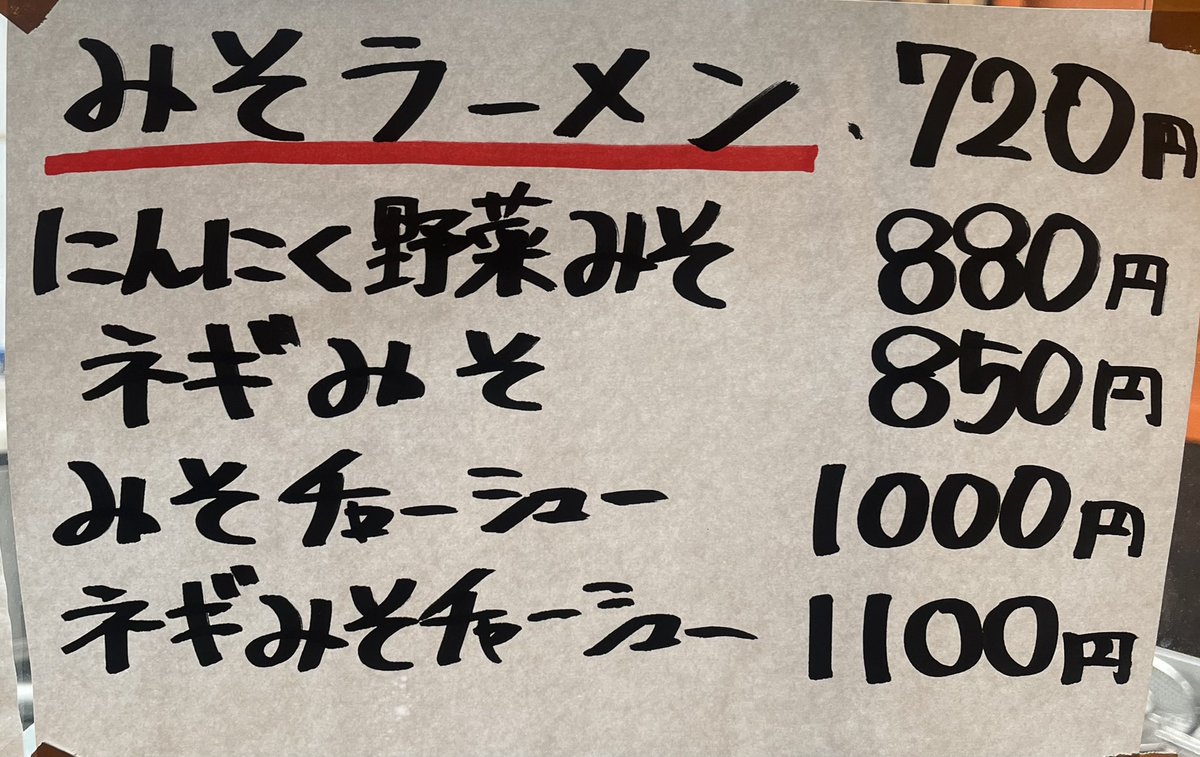 みそラーメン、720円
にんにく野菜みそ 880円
ネギみそ 850円
みそチャーシュー 1000円
ネギみそチャーシュー 1100円